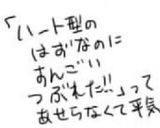 「ハート型の
はずなのに
すんごい
つぶれた!!」って
あせらなくて平気